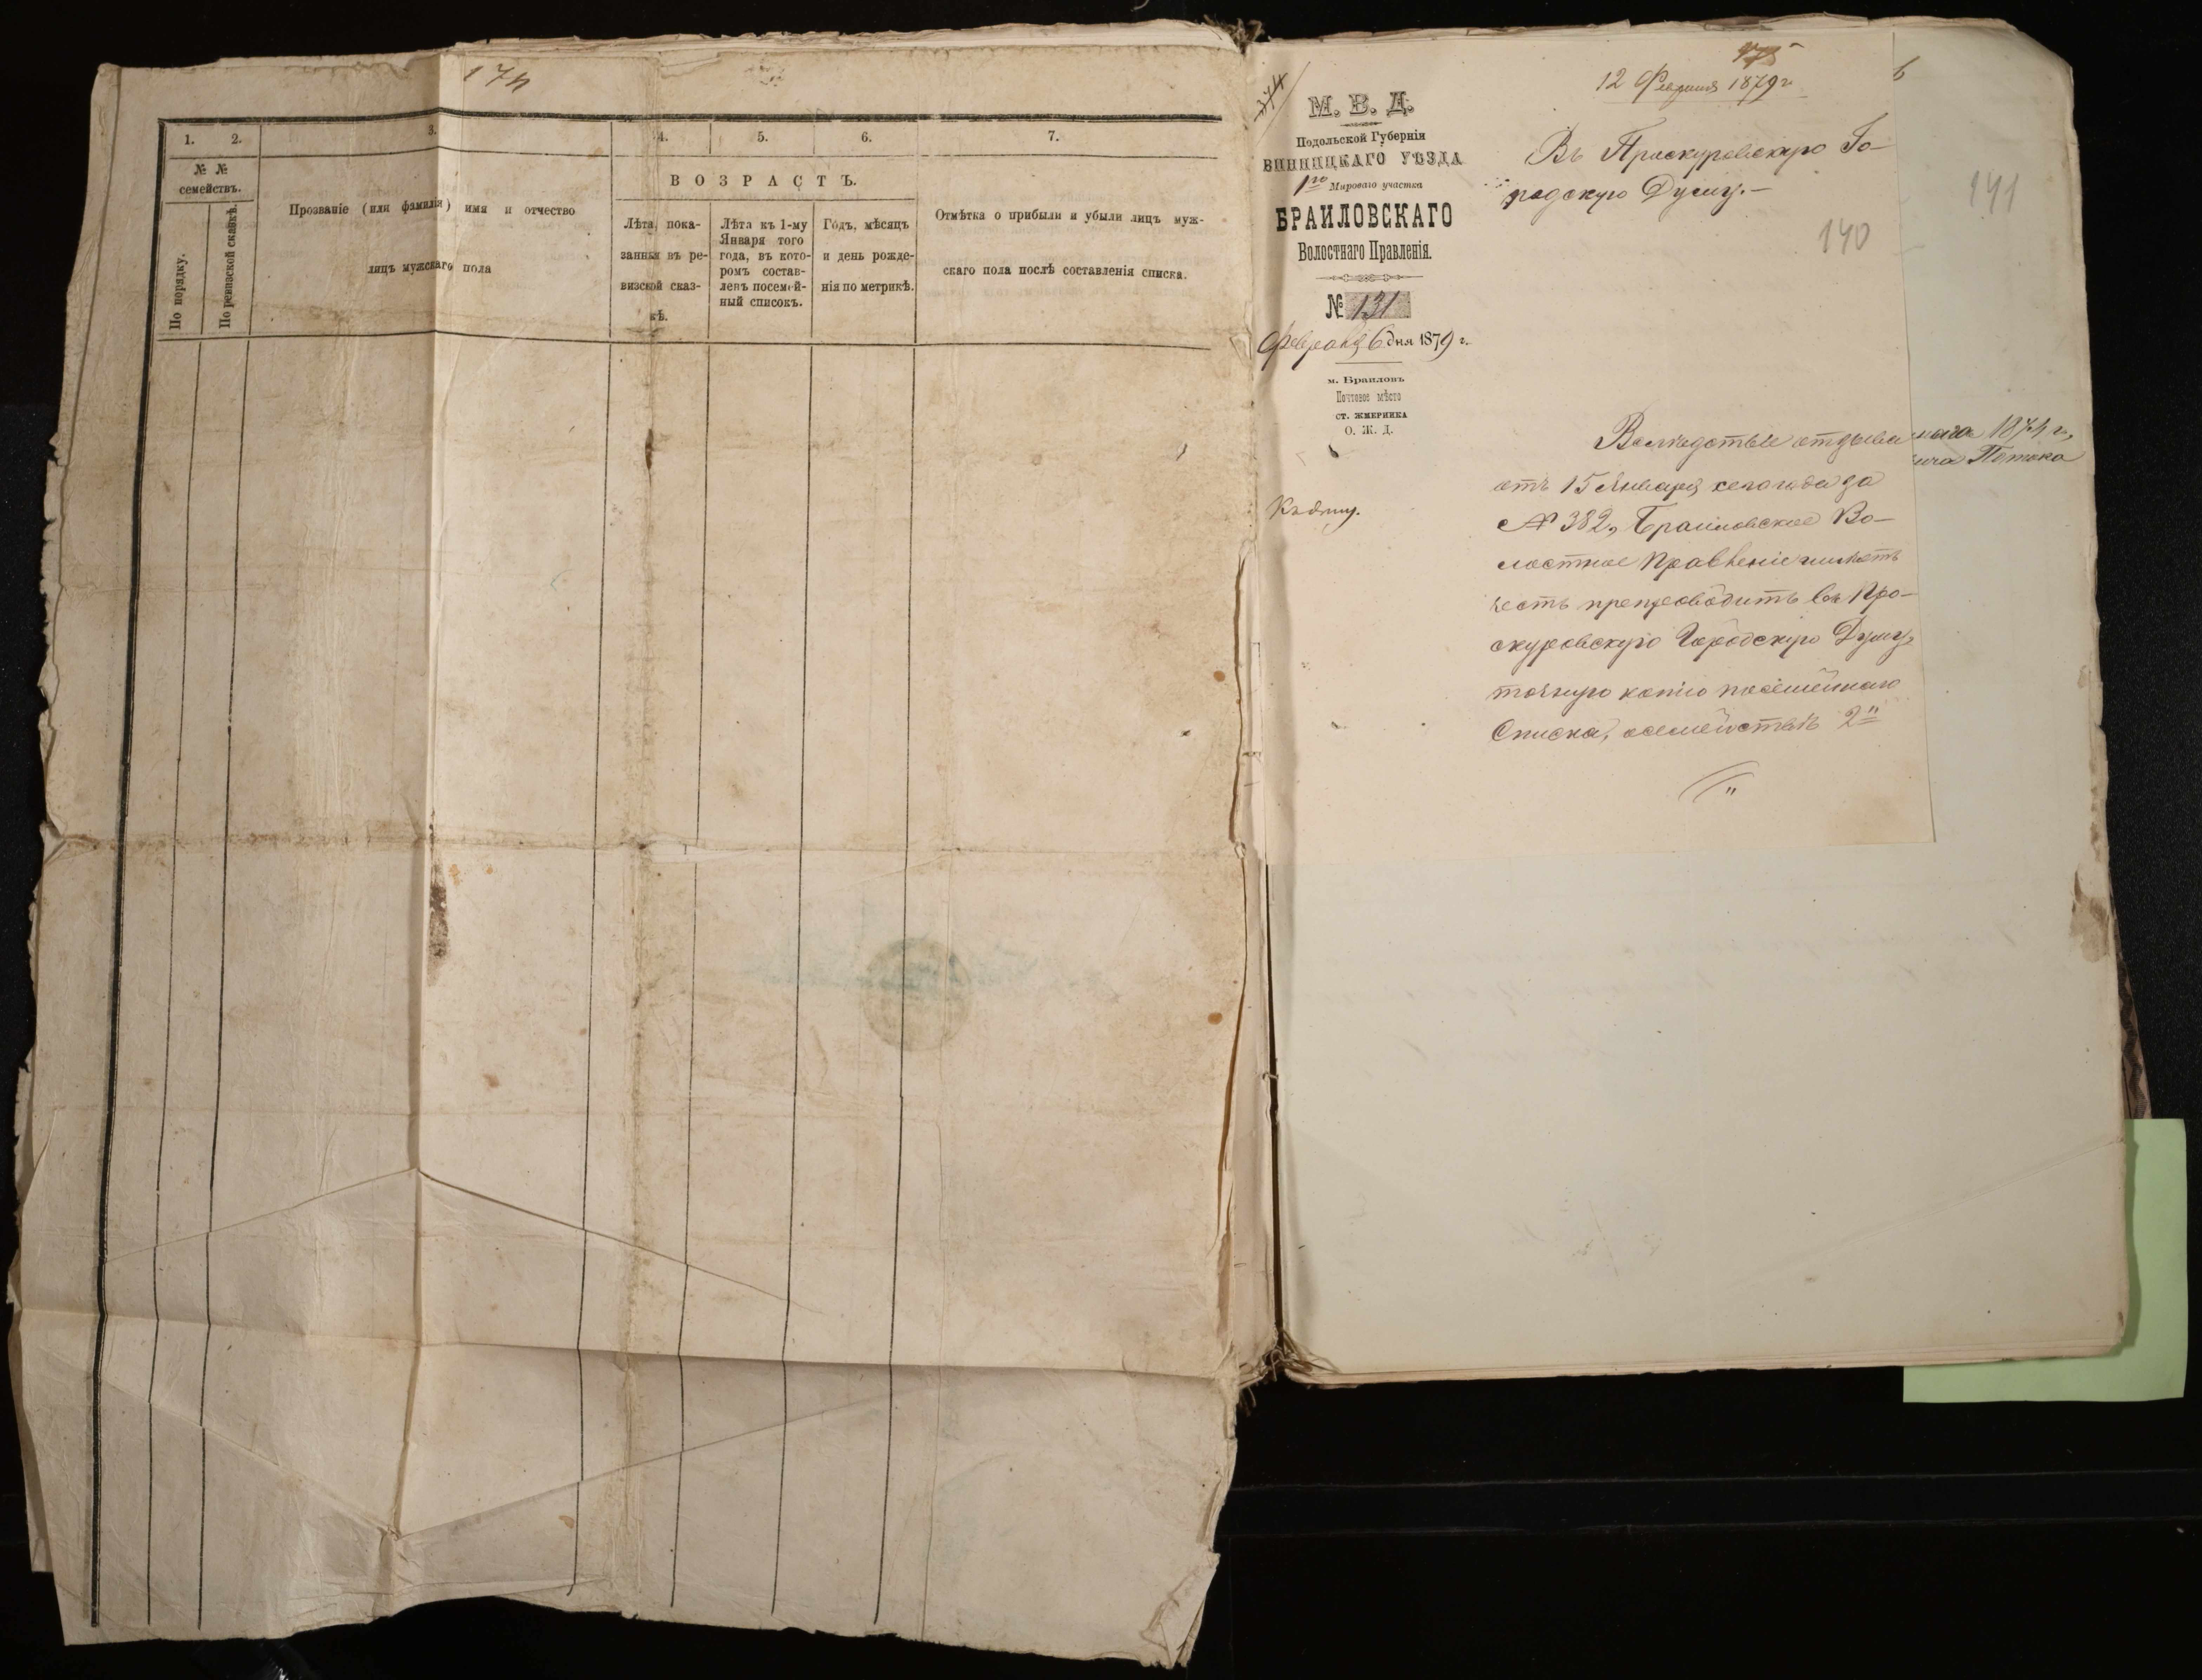 174
1. 2. 3. 4. 5. 6. 7.
№ №
семействъ.
По порядку.
По ревизской сказкѣ.
Прозваніе (или фамилія) имя и отчество
лицъ мужскаго пола
ВОЗРАСТЪ.
Лѣта, пока-
занныя въ ре-
визской сказ-
кѣ.
Лѣта къ 1-му
Января того
года, въ кото-
ромъ состав-
ленъ посемей-
ный списокъ.
Годъ, мѣсяцъ
и день рожде-
нія по метрикѣ.
Отмѣтка о прибыли и убыли лицъ муж-
скаго пола послѣ составленія списка.
175
12 Февраля 1879 г
М. В. Д.
Подольской Губерніи
ВИННИЦКАГО УѢЗДА
1го Мироваго участка
БРАИЛОВСКАГО
Волостнаго Правленія.
№ 131
Февраля 6 дня 1879 г.
м. Браиловъ
Почтовое мѣсто
ст. ЖМЕРИНКА
О. Ж. Д.
Въ Проскуровскую Го-
родскую Думу.-
140
141
Вслѣдствіе отзыва
отъ 15 Января сего года за
№ 382, Браиловское Во-
лостное Правленіе имѣетъ
честь препроводить въ Про-
скуровскую Городскую Думу,
точную копію посемейнаго
Списка, о семействѣ 2"
Къ дѣлу.
1874 г,
Потока